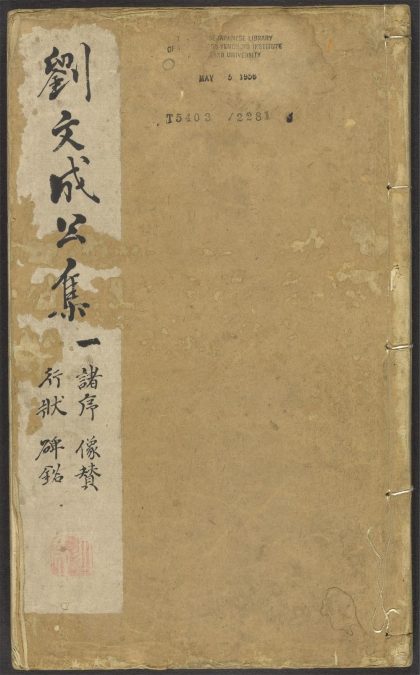 劉文成公集一
諸序 像賛
行狀 碑銘
JAPANESE LIBRARY
INSTITUTE
UNIVERSITY
MAY 5 1956
T5403 /2281